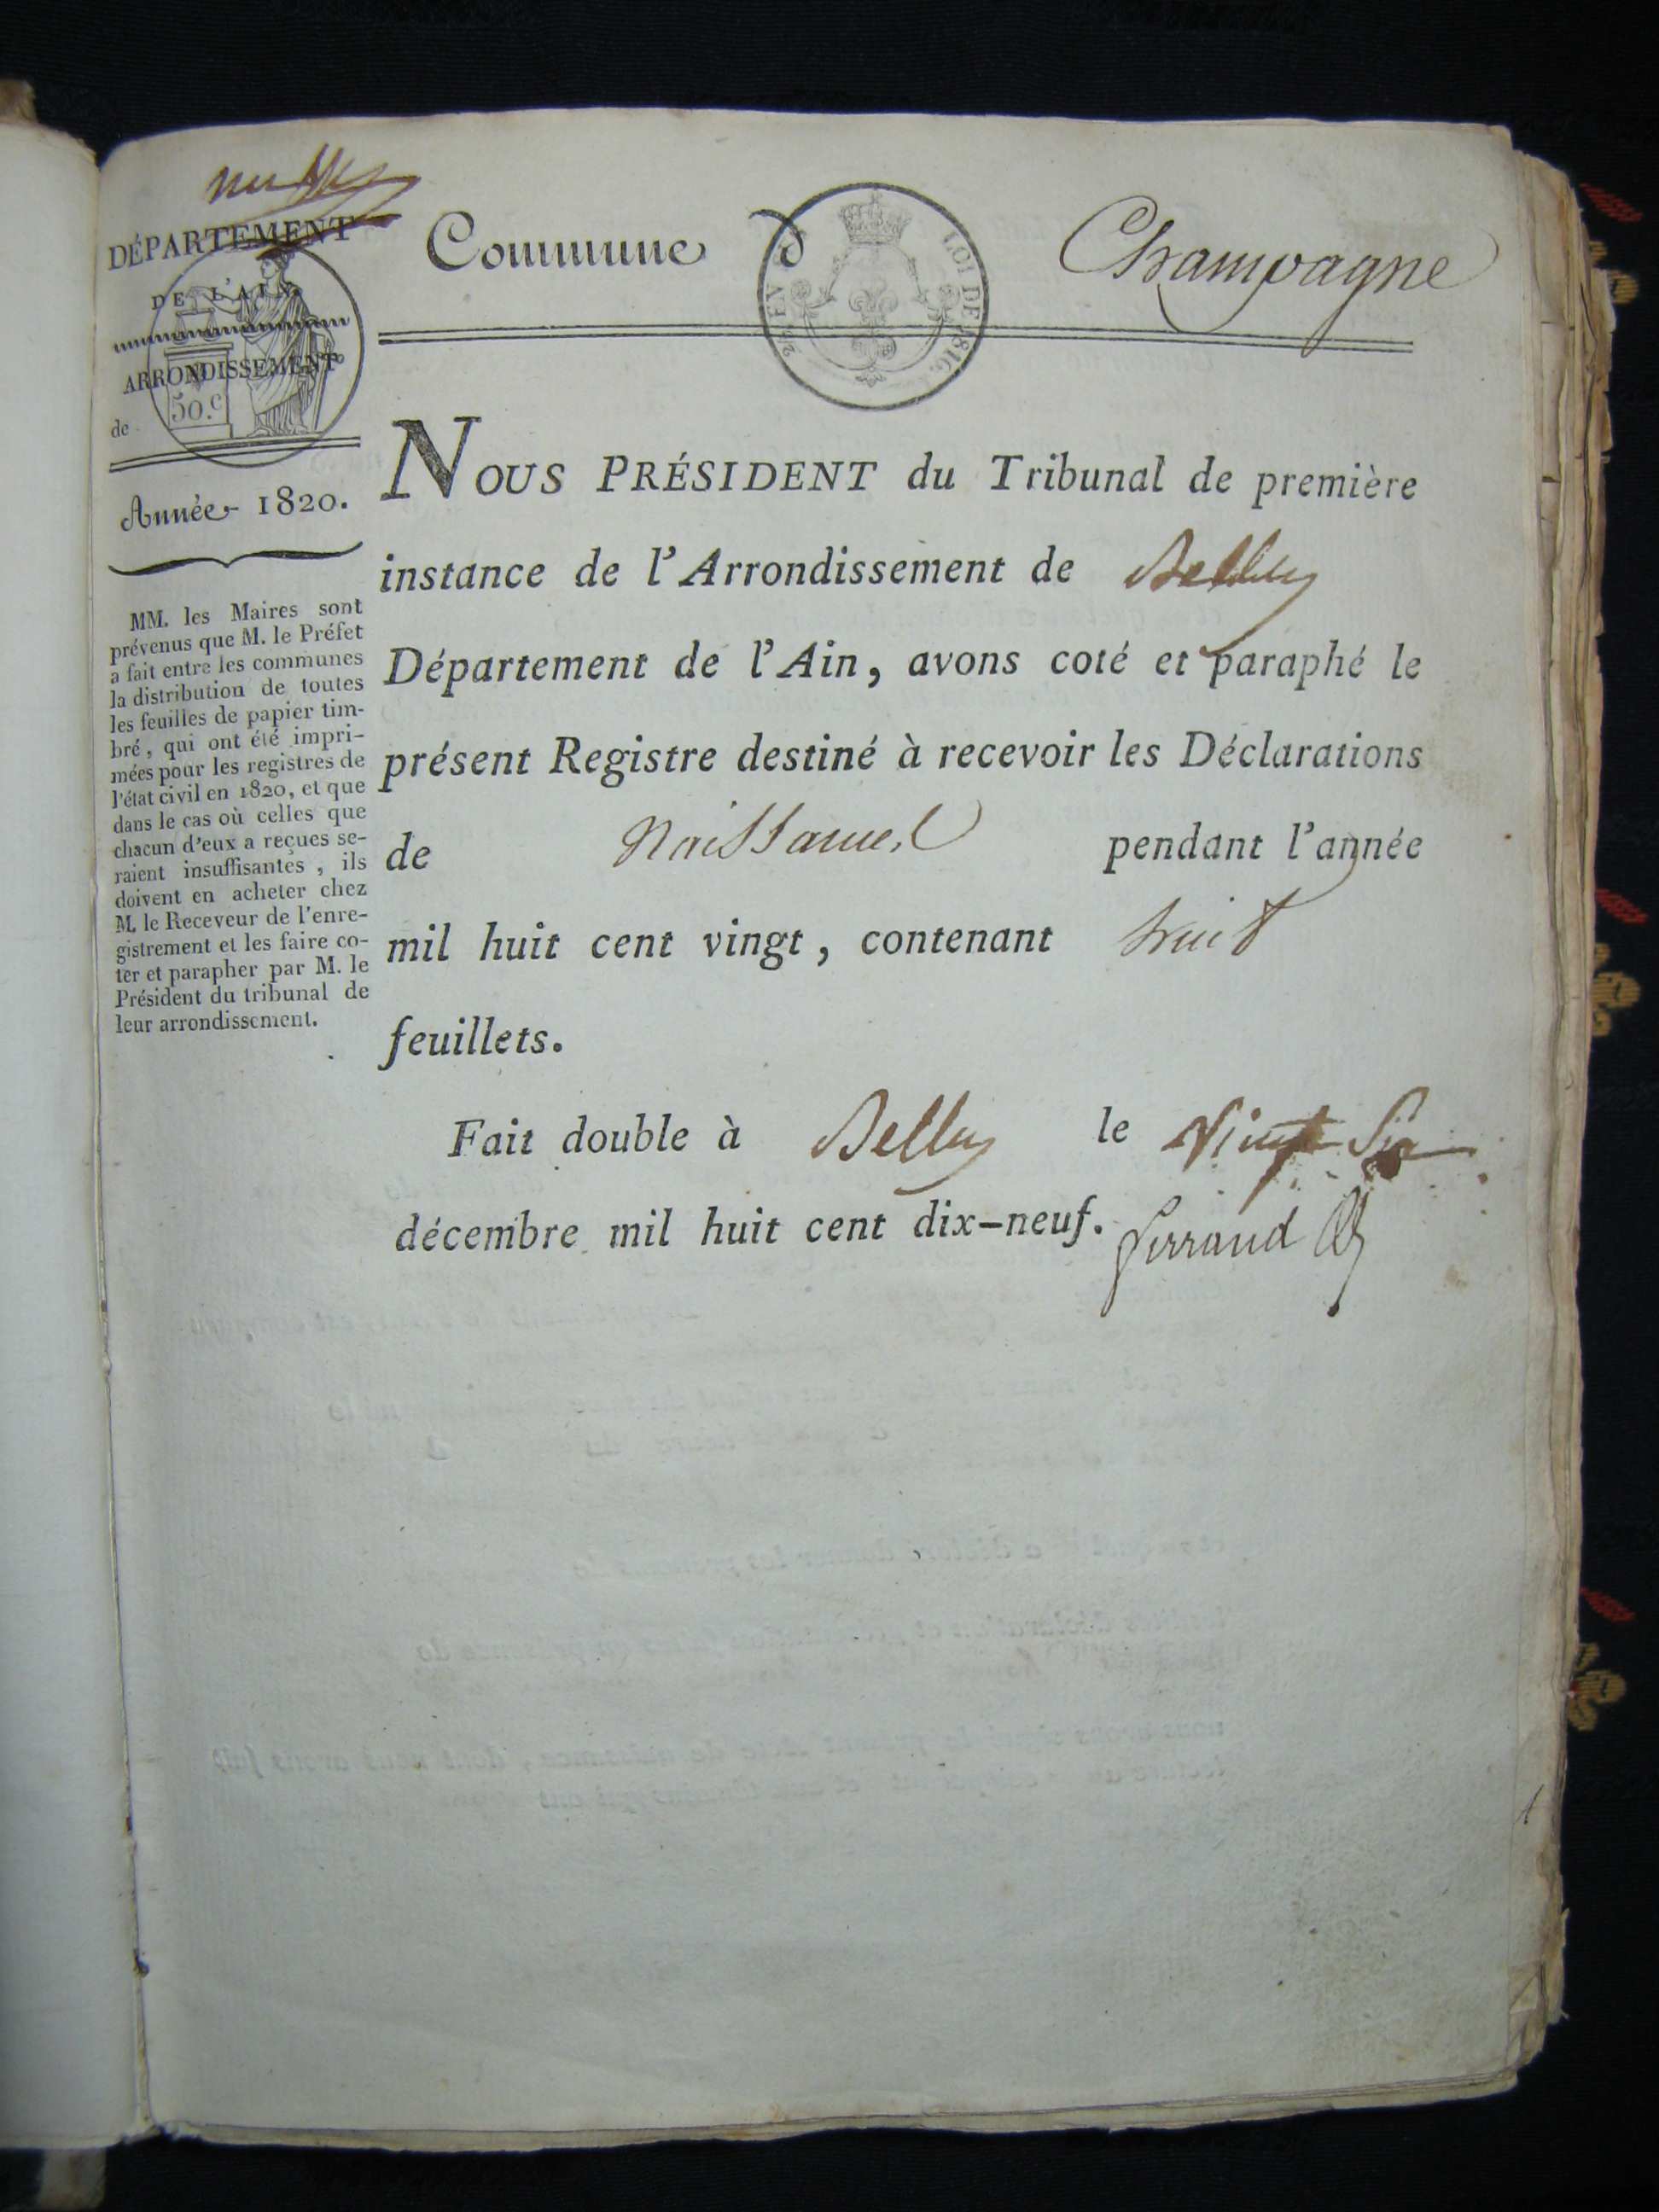 DÉPARTEMENT
DE L'AIN.
ARRONDISSEMENT
50.c
de
Année 1820.
MM. les Maires sont
prévenus que M. le Préfet
a fait entre les communes
la distribution de toutes
les feuilles de papier tim-
bré, qui ont été impri-
mées pour les registres de
l'état civil en 1820, et que
dans le cas où celles que
chacun d'eux a reçues se-
raient insuffisantes, ils
doivent en acheter chez
M. le Receveur de l'enre-
gistrement et les faire co-
ter et parapher par M. le
Président du tribunal de
leur arrondissement.
Commune d Champagne
LOI DE 1816.
NOUS PRÉSIDENT du Tribunal de première
instance de l'Arrondissement de Belley
Département de l'Ain, avons coté et paraphé le
présent Registre destiné à recevoir les Déclarations
de Naissances pendant l'année
mil huit cent vingt, contenant huit
feuillets.
Fait double à Belley le Vingt Six
décembre mil huit cent dix-neuf.
1